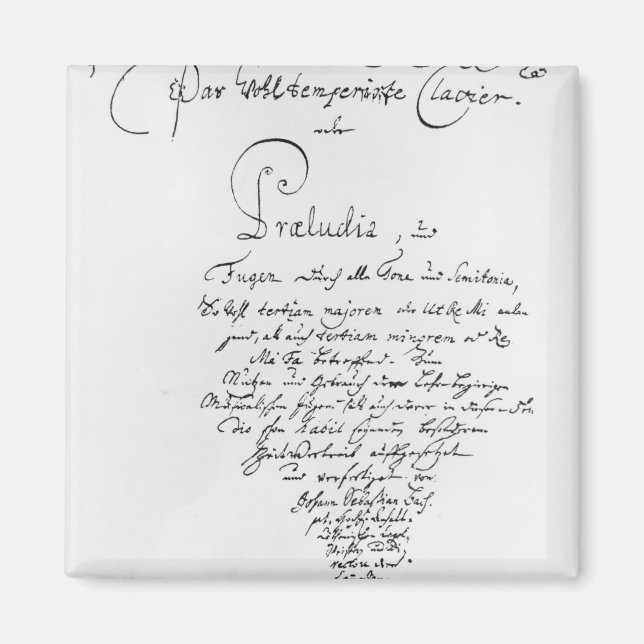 Das Wohltemperirte Clavier.
oder
Præludia, und
Fugen durch alle Tone und Semitonia,
So wohl tertiam majorem oder Ut Re Mi anlan
gend, als auch tertiam minorem od Re
Mi Fa betreffend. Zum
Nutzen und Gebrauch der Lehr-begierigen
Musicalischen Jugend als auch derer in diesem Stu
dio schon habil seyenden besonderem
Zeitvertreib auffgesetzet
und verfertiget von
Johann Sebastian Bach.
p.t. Hochf. Anhalt-
Cöthenischen Capel-
Meistern und Di-
rectore derer